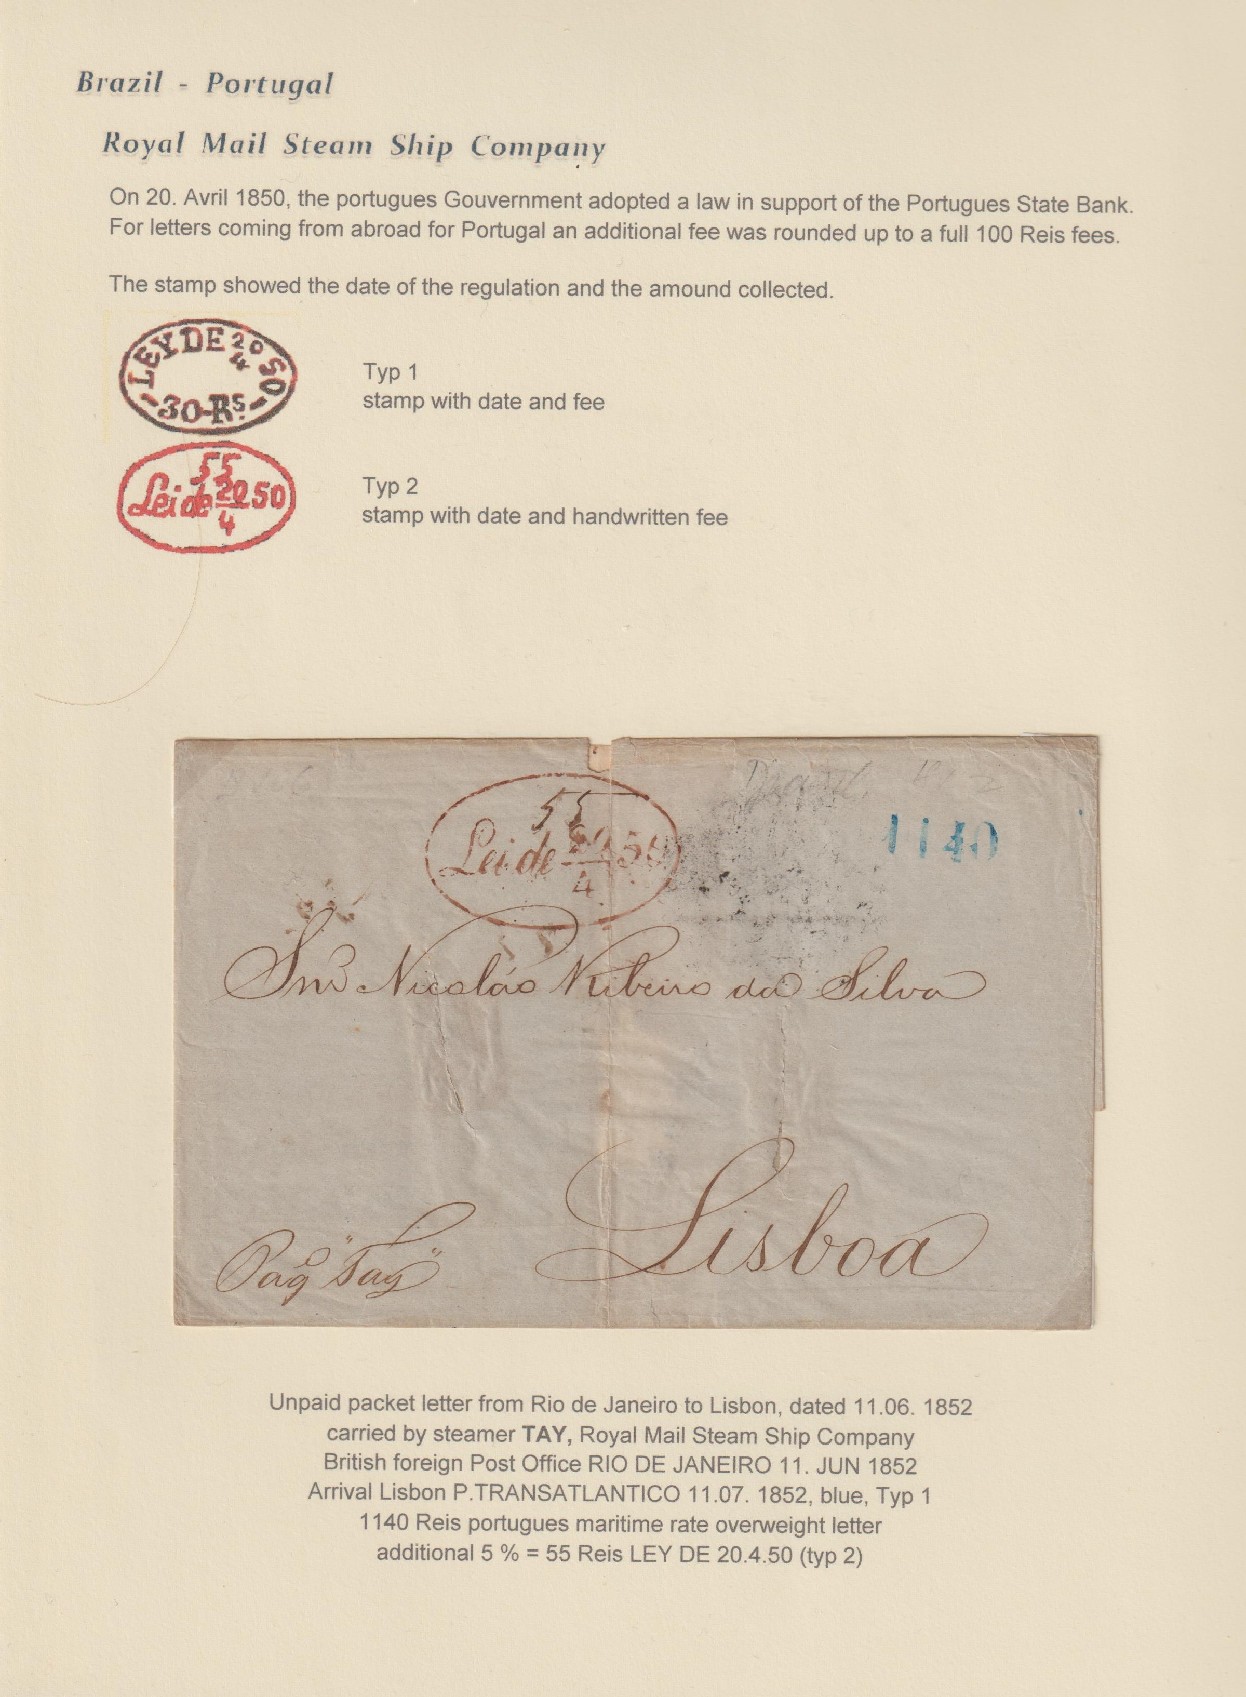 Brazil - Portugal
Royal Mail Steam Ship Company
On 20. Avril 1850, the portugues Gouvernment adopted a law in support of the Portugues State Bank.
For letters coming from abroad for Portugal an additional fee was rounded up to a full 100 Reis fees.
The stamp showed the date of the regulation and the amound collected.
LEY DE 20/4 50
30-Rs.
Typ 1
stamp with date and fee
55
Lei de 20/4 50
Typ 2
stamp with date and handwritten fee
1140
55
Lei de 20/4 50
Snr Nicoláo Ribeiro da Silva
Lisboa
"Tay"
Unpaid packet letter from Rio de Janeiro to Lisbon, dated 11.06. 1852
carried by steamer TAY, Royal Mail Steam Ship Company
British foreign Post Office RIO DE JANEIRO 11. JUN 1852
Arrival Lisbon P.TRANSATLANTICO 11.07. 1852, blue, Typ 1
1140 Reis portugues maritime rate overweight letter
additional 5 % = 55 Reis LEY DE 20.4.50 (typ 2)